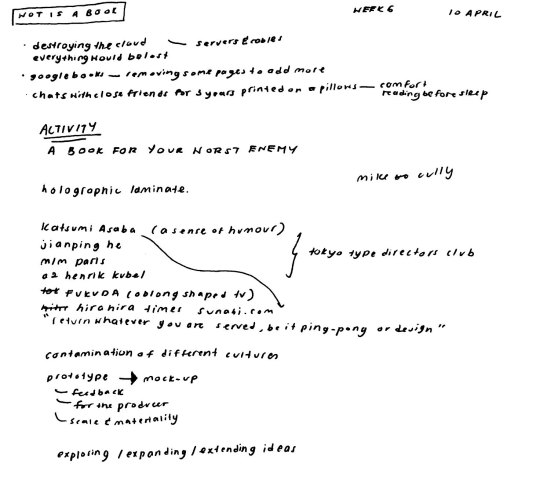 NOT IS A BOOK
WEEK 6
10 APRIL
· destroying the cloud — servers & cables
everything would be lost
· google books — removing some pages to add more
· chats with close friends for 3 years printed on a pillows — comfort
reading before sleep
ACTIVITY
A BOOK FOR YOUR WORST ENEMY
mike cully
holographic laminate.
Katsumi Asaba (a sense of humour)
jianping he
tokyo type directors club
m/m paris
a2 henrik kubel
FUKUDA (oblong shaped tv)
hirahira times sunati.com
"return whatever you are served, be it ping-pong or design"
contamination of different cultures
prototype → mock-up
feedback
for the producer
scale & materiality
exploring / expanding / extending ideas